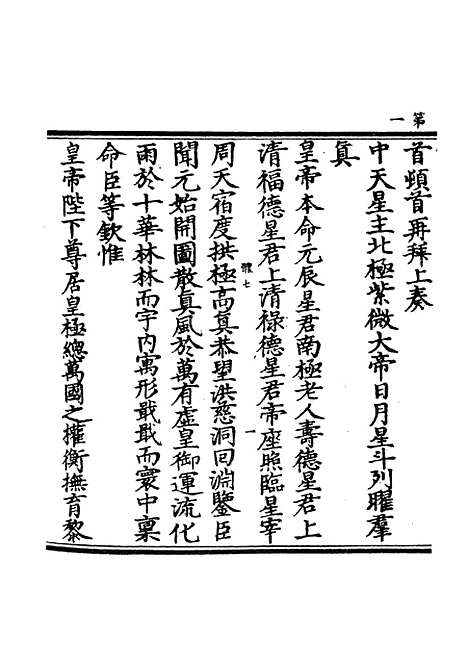 第一
首頓首再拜上奏
中天星主北極紫微大帝日月星斗列曜羣
真
皇帝本命元辰星君南極老人壽德星君上
清福德星君上清祿德星君帝座照臨星宰
周天宿度拱極高真恭望洪慈洞回淵鑒臣
體七
一
聞元始開圖散真風於萬有虛皇御運流化
雨於十華林林而宇內寓形戢戢而寰中稟
命臣等欽惟
皇帝陛下尊居皇極總萬國之權衡撫育黎